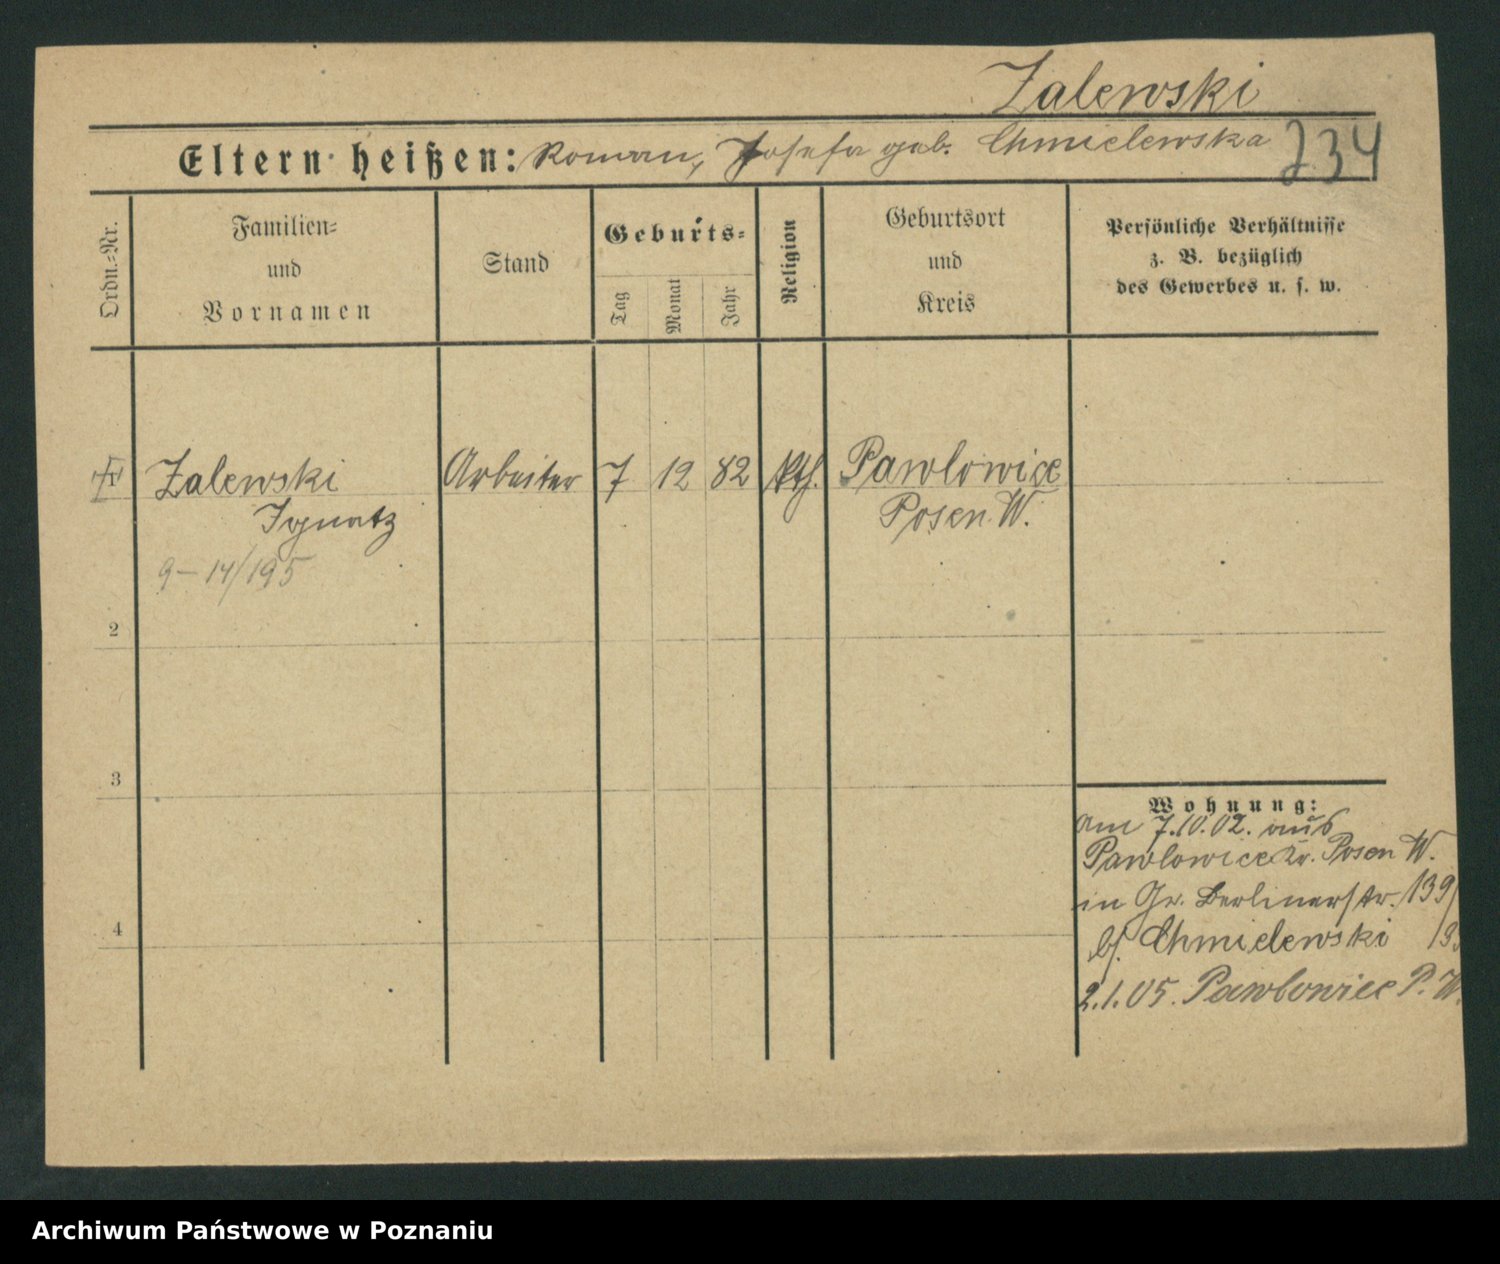 Zalewski
Eltern heißen: Roman, Josefa geb. Chmielewska
234
Ordn.-Nr.
Familien-
und
Vornamen
Stand
Geburts-
Tag
Monat
Jahr
Religion
Geburtsort
und
Kreis
Persönliche Verhältnisse
z. B. bezüglich
des Gewerbes u. s. w.
1 Zalewski Arbeiter 7 12 82 kth. Pawlowice
Ignatz Posen W.
9-14/195
2
3
4
Wohnung:
am 7.10.02. aus
Pawlowice Kr. Posen W.
in Gr. Berlinerstr. 139/
bf. Chmielewski
2.1.05. Pawlowice P. W.
Archiwum Państwowe w Poznaniu